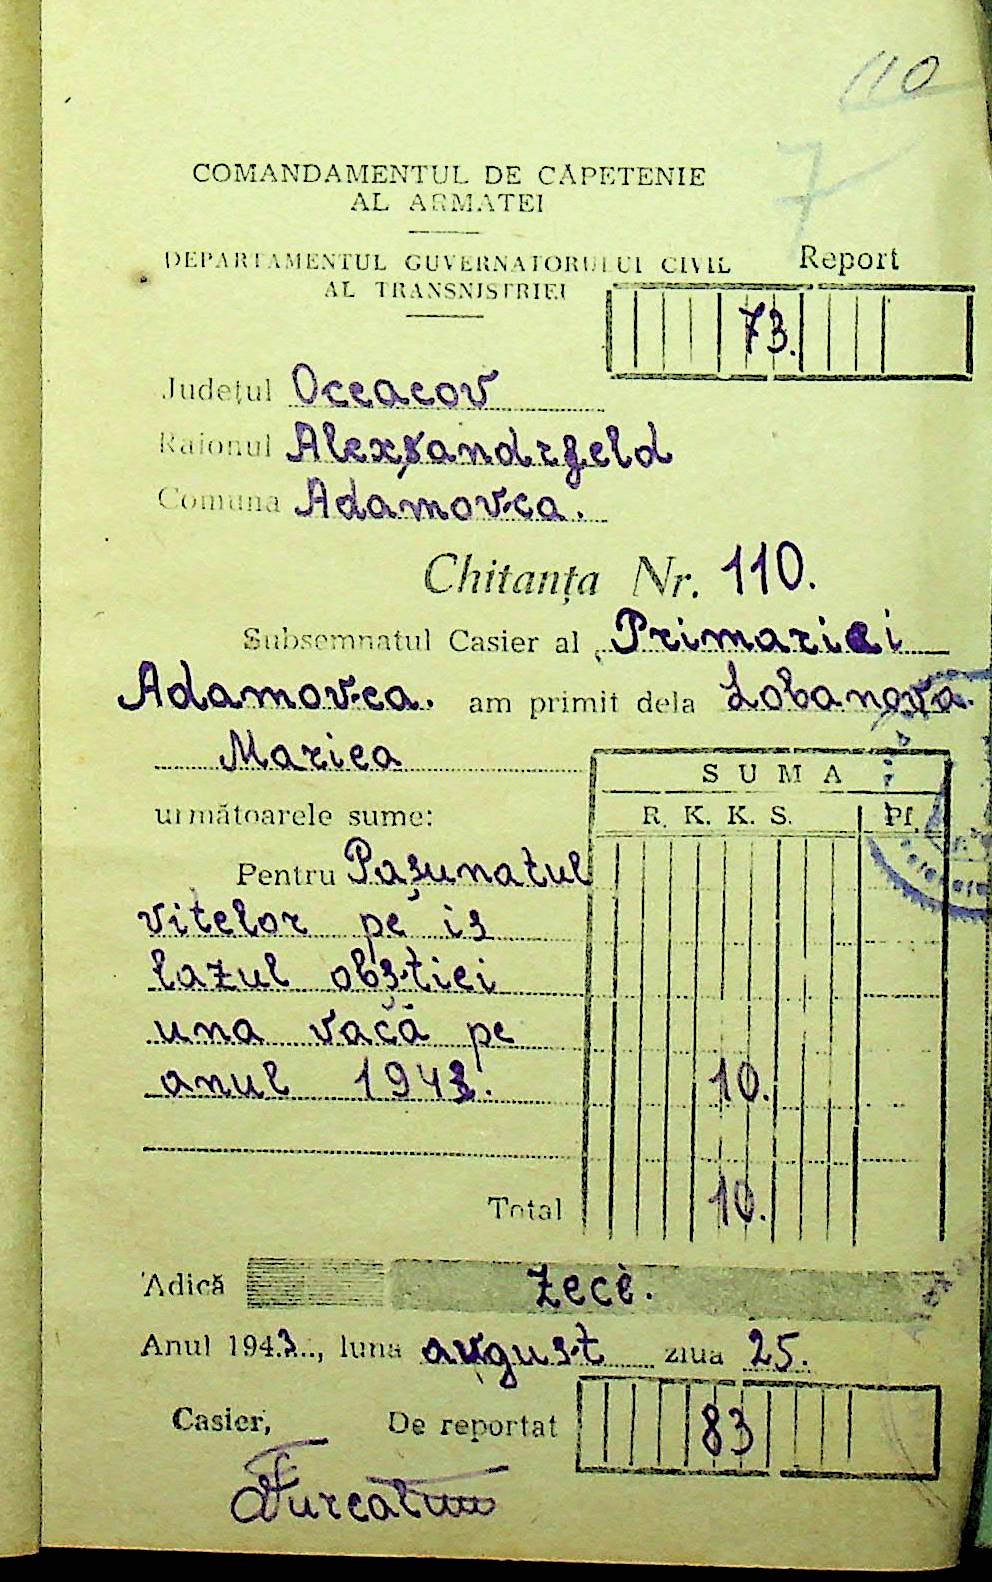 110
7
COMANDAMENTUL DE CĂPETENIE
AL ARMATEI
DEPARTAMENTUL GUVERNATORULUI CIVIL
AL TRANSNISTRIEI
Report
73.
Județul Oceacov
Raionul Alexsandrfeld
Comuna Adamovca.
Chitanța Nr. 110.
Subsemnatul Casier al Primariei
Adamovca. am primit dela Lobanova
Mariea
SUMA
următoarele sume:
R. K. K. S. Pf.
Pentru Pașunatul
vitelor pe is
lazul obștiei
una vacă pe
anul 1943. 10.
Total 10.
Adică zece.
Anul 1943.., luna avgust ziua 25.
Casier, De reportat 83